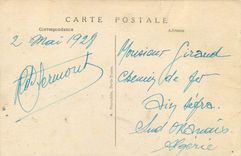 CARTE POSTALE
Correspondance
Adresse
2 Mai 1929
Monsieur Giraud
Chemin de fer
Aïn Séfra
Sud Oranais
Algérie